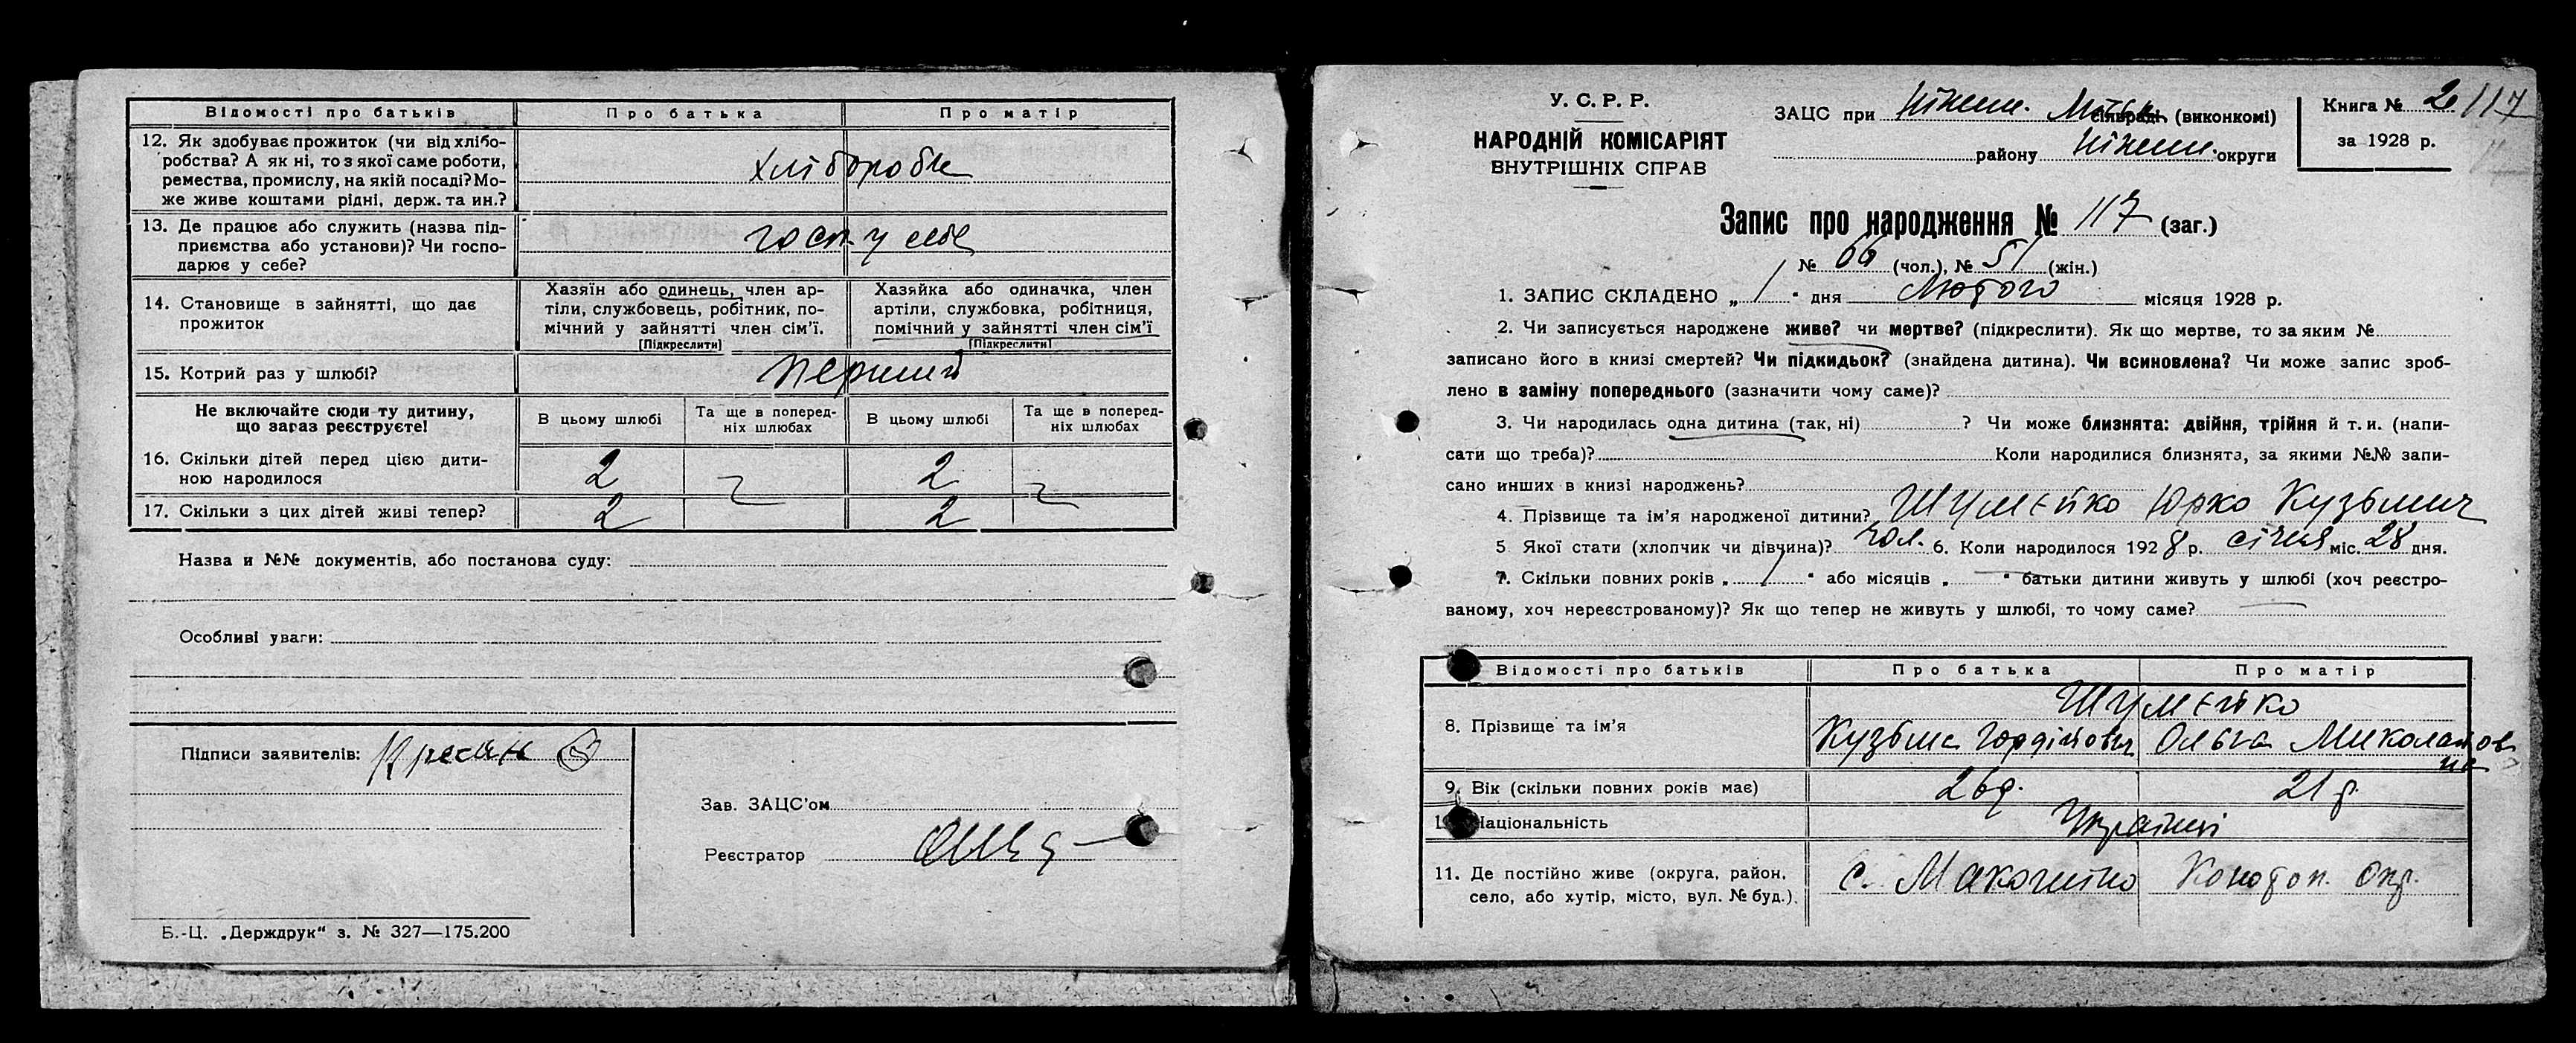 Відомості про батьків Про батька Про матір
12. Як здобуває прожиток (чи від хлібо-
робства? А як ні, то з якої саме роботи,
ремества, промислу, на якій посаді? Мо-
же живе коштами рідні, держ. та ин.?
хлібороби
13. Де працює або служить (назва під-
приємства або установи)? Чи госпо-
дарює у себе?
госп. у себе
14. Становище в зайнятті, що дає
прожиток
Хазяїн або одинець, член ар-
тіли, службовець, робітник, по-
мічний у зайнятті член сім'ї.
[Підкреслити]
Хазяйка або одиначка, член
артіли, службовка, робітниця,
помічний у зайнятті член сім'ї
[Підкреслити]
15. Котрий раз у шлюбі? перший
Не включайте сюди ту дитину,
що зараз реєструєте!
В цьому шлюбі
Та ще в поперед-
ніх шлюбах
В цьому шлюбі
Та ще в поперед-
ніх шлюбах
16. Скільки дітей перед цією дити-
ною народилося
2 2
17. Скільки з цих дітей живі тепер? 2 2
Назва и №№ документів, або постанова суду:
Особливі уваги:
Підписи заявителів:
Зав. ЗАЦС'ом
Реєстратор
Б.-Ц. „Держдрук" з. № 327—175.200
У. С. Р. Р.
НАРОДНІЙ КОМІСАРІЯТ
ВНУТРІШНІХ СПРАВ
ЗАЦС при Ніжин. Міськ сільраді (виконкомі)
району Ніжин. округи
Книга № 2 117
за 1928 р.
Запис про народження № 117 (заг.)
№ 66 (чол.), № 51 (жін.)
1. ЗАПИС СКЛАДЕНО „ 1 " дня Лютого місяця 1928 р.
2. Чи записується народжене живе? чи мертве? (підкреслити). Як що мертве, то за яким №
записано його в книзі смертей? Чи підкидьок? (знайдена дитина). Чи всиновлена? Чи може запис зроб-
лено в заміну попереднього (зазначити чому саме)?
3. Чи народилась одна дитина (так, ні) ? Чи може близнята: двійня, трійня й т. и. (напи-
сати що треба)? Коли народилися близнята, за якими №№ запи-
сано инших в книзі народжень?
4. Прізвище та ім'я народженої дитини? Шумейко Юрко Кузьмич
5 Якої стати (хлопчик чи дівчина)? чол. 6. Коли народилося 1928 р. січня міс. 28 дня.
7. Скільки повних років „ " або місяців „ " батьки дитини живуть у шлюбі (хоч реєстро-
ваному, хоч нереєстрованому)? Як що тепер не живуть у шлюбі, то чому саме?
Відомості про батьків Про батька Про матір
8. Прізвище та ім'я
Шумейко
Кузьма Гордійович Ольга Миколаївна
9. Вік (скільки повних років має) 26 р. 21 р.
Національність Українці
11. Де постійно живе (округа, район,
село, або хутір, місто, вул. № буд.).
с. Макошино Конотоп. Окр.